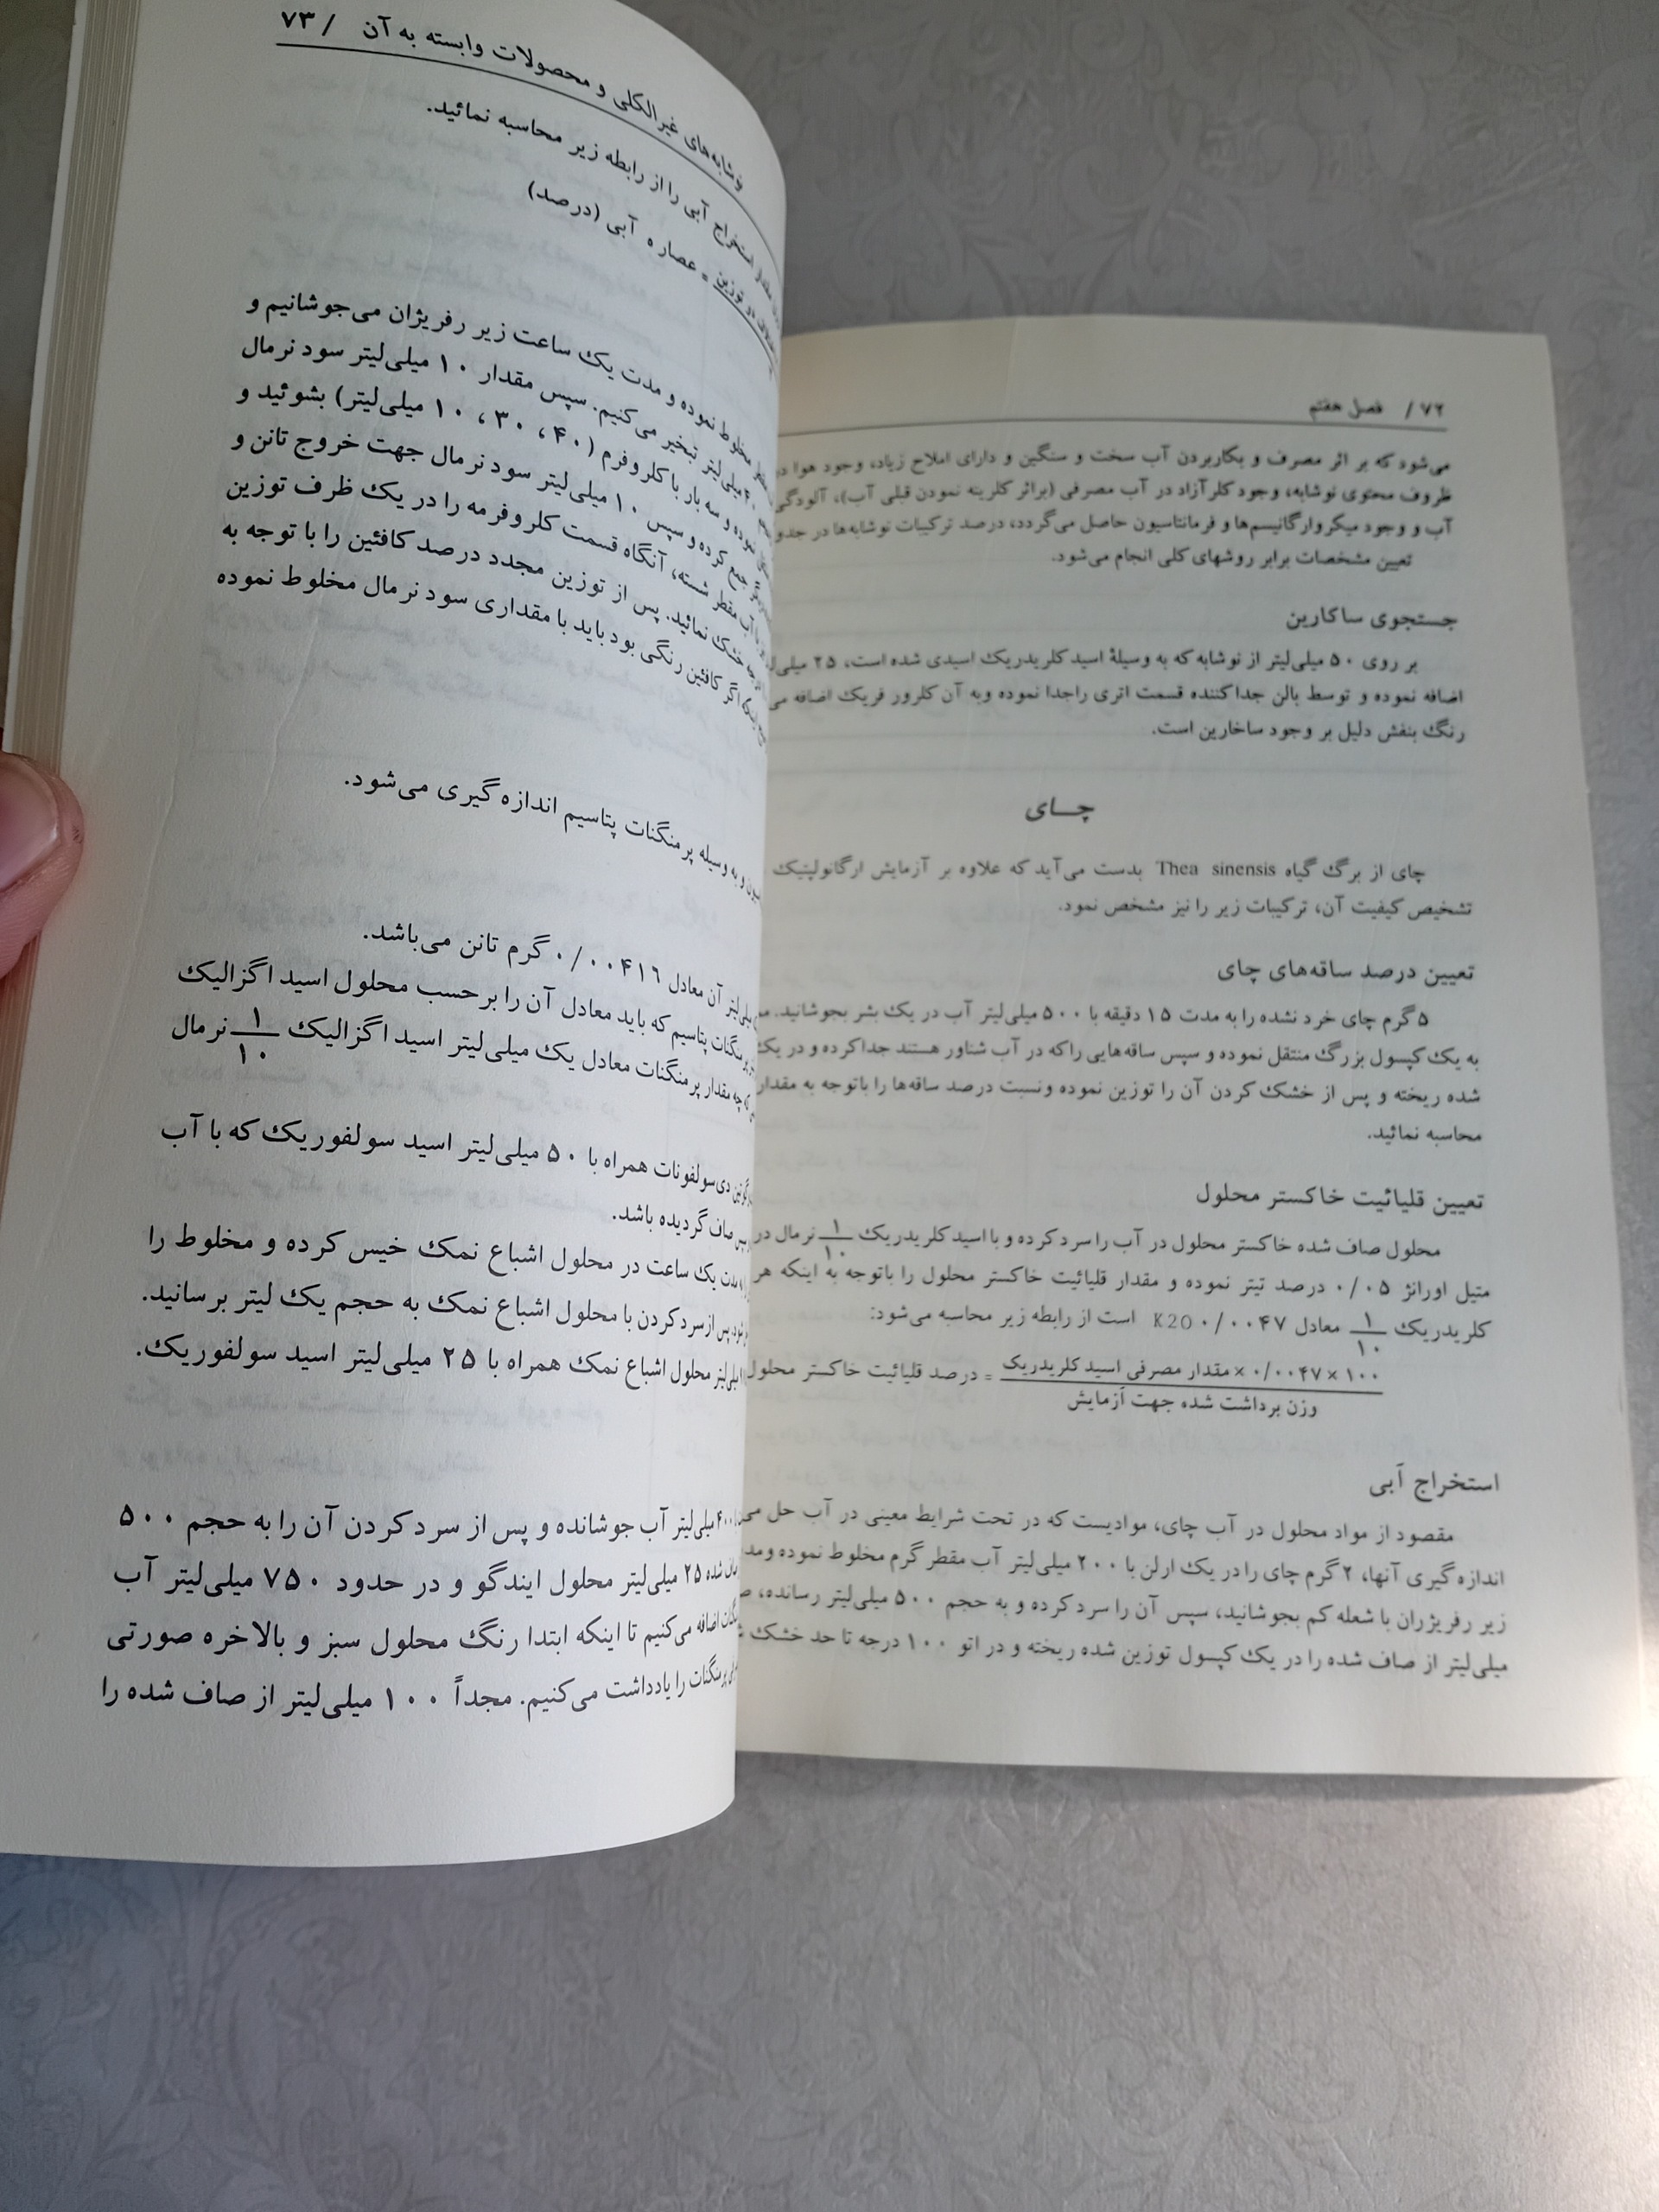 ۷۲ / فصل هفتم
می‌شود که بر اثر مصرف و بکاربردن آب سخت و سنگین و دارای املاح زیاد، وجود هوا در
ظروف محتوی نوشابه، وجود کلرآزاد در آب مصرفی (براثر کلرینه نمودن قبلی آب)، آلودگی
آب و وجود میکروارگانیسم‌ها و فرمانتاسیون حاصل می‌گردد، درصد ترکیبات نوشابه‌ها در
تعیین مشخصات برابر روشهای کلی انجام می‌شود.
جستجوی ساکارین
بر روی ۵۰ میلی‌لیتر از نوشابه که به وسیلهٔ اسید کلریدریک اسیدی شده است، ۲۵
اضافه نموده و توسط بالن جداکننده قسمت اتری راجدا نموده وبه آن کلرور فریک اضافه
رنگ بنفش دلیل بر وجود ساخارین است.
چـــای
چای از برگ گیاه Thea sinensis بدست می‌آید که علاوه بر آزمایش ارگانولپتیک
تشخیص کیفیت آن، ترکیبات زیر را نیز مشخص نمود.
تعیین درصد ساقه‌های چای
۵ گرم چای خرد نشده را به مدت ۱۵ دقیقه با ۵۰۰ میلی‌لیتر آب در یک بشر بجوشانید.
به یک کپسول بزرگ منتقل نموده و سپس ساقه‌هایی راکه در آب شناور هستند جداکرده و در یک
شده ریخته و پس از خشک کردن آن را توزین نموده ونسبت درصد ساقه‌ها را باتوجه به مقدار
محاسبه نمائید.
تعیین قلیائیت خاکستر محلول
محلول صاف شده خاکستر محلول در آب را سرد کرده و با اسید کلریدریک ۱/۱۰ نرمال در
متیل اورانژ ۰/۰۵ درصد تیتر نموده و مقدار قلیائیت خاکستر محلول را باتوجه به اینکه هر
کلریدریک ۱/۱۰ معادل ۰/۰۰۴۷ K2O است از رابطه زیر محاسبه می‌شود:
۱۰۰ × ۰/۰۰۴۷ × مقدار مصرفی اسید کلریدریک = درصد قلیائیت خاکستر محلول
وزن برداشت شده جهت آزمایش
استخراج آبی
مقصود از مواد محلول در آب چای، موادیست که در تحت شرایط معینی در آب حل
اندازه گیری آنها، ۲ گرم چای را در یک ارلن با ۲۰۰ میلی‌لیتر آب مقطر گرم مخلوط نموده
زیر رفریژران با شعله کم بجوشانید، سپس آن را سرد کرده و به حجم ۵۰۰ میلی‌لیتر رسانده،
میلی‌لیتر از صاف شده را در یک کپسول توزین شده ریخته و در اتو ۱۰۰ درجه تا حد خشک
نوشابه‌های غیرالکلی و محصولات وابسته به آن / ۷۳
استخراج آبی را از رابطه زیر محاسبه نمائید.
دو توزین = عصاره آبی (درصد)
مخلوط نموده و مدت یک ساعت زیر رفریژان می‌جوشانیم و
میلی‌لیتر تبخیر می‌کنیم. سپس مقدار ۱۰ میلی‌لیتر سود نرمال
نموده و سه بار با کلروفرم (۴۰، ۳۰، ۱۰ میلی‌لیتر) بشوئید و
جمع کرده و سپس ۱۰ میلی‌لیتر سود نرمال جهت خروج تانن و
با آب مقطر شسته، آنگاه قسمت کلروفرمه را در یک ظرف توزین
خشک نمائید. پس از توزین مجدد درصد کافئین را با توجه به
اگر کافئین رنگی بود باید با مقداری سود نرمال مخلوط نموده
و به وسیله پرمنگنات پتاسیم اندازه گیری می‌شود.
میلی‌لیتر آن معادل ۰/۰۰۴۱۶ گرم تانن می‌باشد.
پرمنگنات پتاسیم که باید معادل آن را بر حسب محلول اسید اگزالیک
که چه مقدار پرمنگنات معادل یک میلی‌لیتر اسید اگزالیک ۱/۱۰ نرمال
دی‌سولفونات همراه با ۵۰ میلی‌لیتر اسید سولفوریک که با آب
صاف گردیده باشد.
بمدت یک ساعت در محلول اشباع نمک خیس کرده و مخلوط را
پس از سرد کردن با محلول اشباع نمک به حجم یک لیتر برسانید.
میلی‌لیتر محلول اشباع نمک همراه با ۲۵ میلی‌لیتر اسید سولفوریک.
میلی‌لیتر آب جوشانده و پس از سرد کردن آن را به حجم ۵۰۰
شده ۲۵ میلی‌لیتر محلول ایندگو و در حدود ۷۵۰ میلی‌لیتر آب
اضافه می‌کنیم تا اینکه ابتدا رنگ محلول سبز و بالاخره صورتی
پرمنگنات را یادداشت می‌کنیم. مجداً ۱۰۰ میلی‌لیتر از صاف شده را